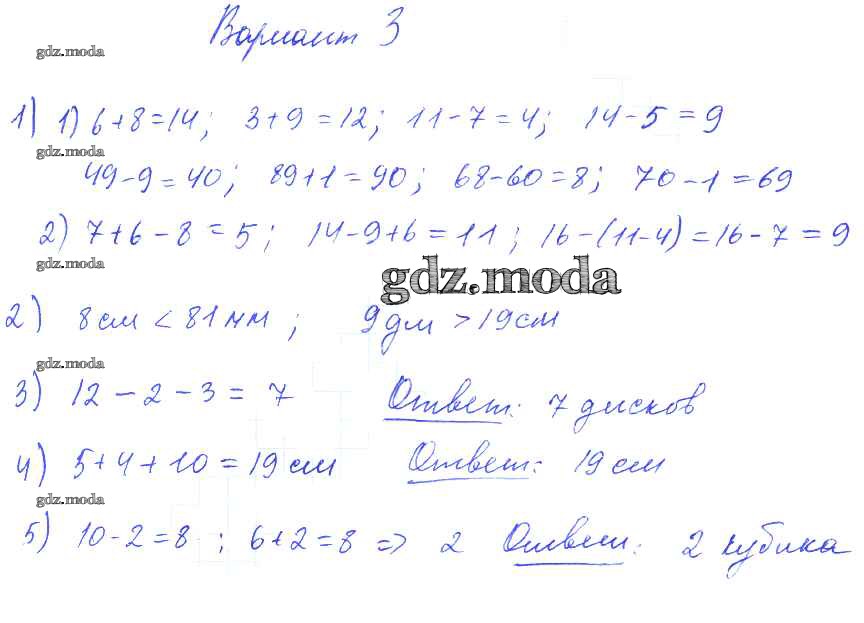 Вариант 3
gdz.moda
1) 1) 6+8=14; 3+9=12; 11-7=4; 14-5=9
gdz.moda
49-9=40; 89+1=90; 68-60=8; 70-1=69
2) 7+6-8=5; 14-9+6=11; 16-(11-4)=16-7=9
gdz.moda
gdz.moda
2) 8см < 81мм; 9дм > 19см
gdz.moda
3) 12-2-3=7 Ответ: 7 дисков
4) 5+4+10=19см Ответ: 19 см
gdz.moda
5) 10-2=8; 6+2=8 => 2 Ответ: 2 кубика